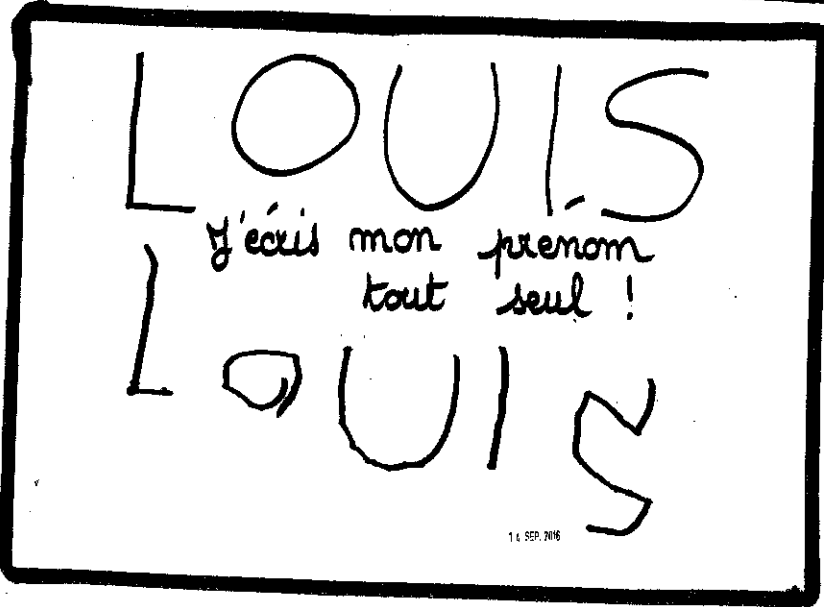 LOUIS
J'écris mon prénom
tout seul !
LOUIS
14 SEP. 2016